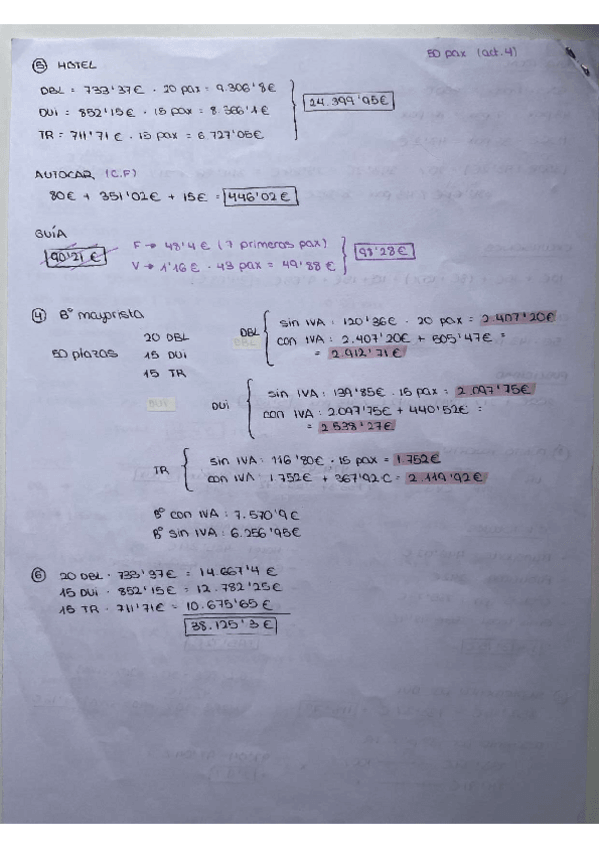 50 pax (act.4)
⑤ HOTEL
DBL = 733'37€ · 20 pax = 9.306'8€
DUI = 852'15€ · 15 pax = 8.366'1€
24.399'95€
TR = 711'71€ · 15 pax = 6.727'05€
AUTOCAR (C.F)
80€ + 351'02€ + 15€ = 446'02€
GUÍA
90'21€
F → 48'4€ (7 primeros pax)
V → 1'16€ · 43 pax = 49'88€
98'28€
④ Bº mayorista
50 plazas
20 DBL
15 DUI
15 TR
DBL
DBL
sin IVA: 120'36€ · 20 pax = 2.407'20€
con IVA: 2.407'20€ + 505'47€ =
= 2.912'71€
DUI
DUI
sin IVA: 139'85€ · 15 pax = 2.097'75€
con IVA: 2.097'75€ + 440'52€ =
= 2.538'27€
TR
sin IVA: 116'80€ · 15 pax = 1.752€
con IVA: 1.752€ + 367'92€ = 2.119'92€
Bº con IVA: 7.570'9€
Bº sin IVA: 6.256'95€
⑥ 20 DBL · 733'37€ = 14.667'4€
15 DUI · 852'15€ = 12.782'25€
15 TR · 711'71€ = 10.675'65€
38.125'3€